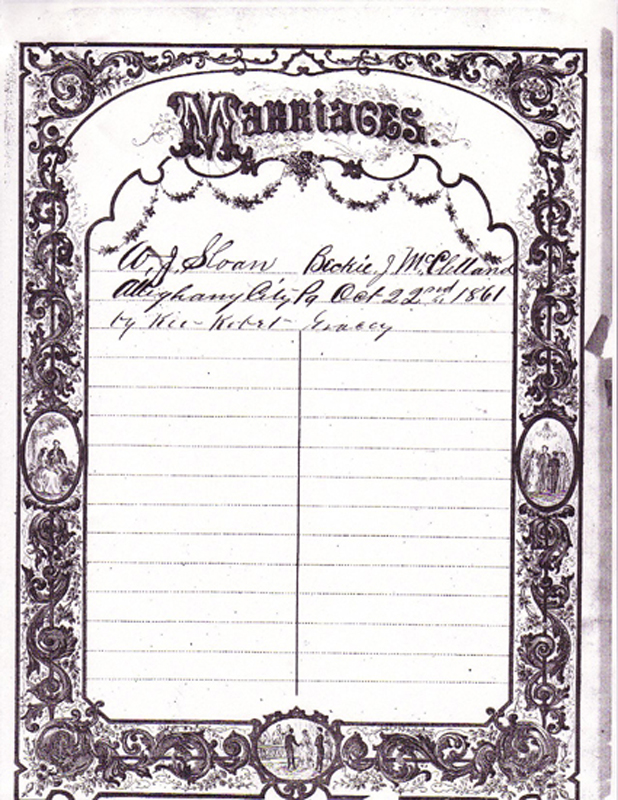 Marriages.
W. J. Sloan Beckie. J McClelland
Alleghany City Pa Oct 22nd 1861
by Rev Robert Gracey